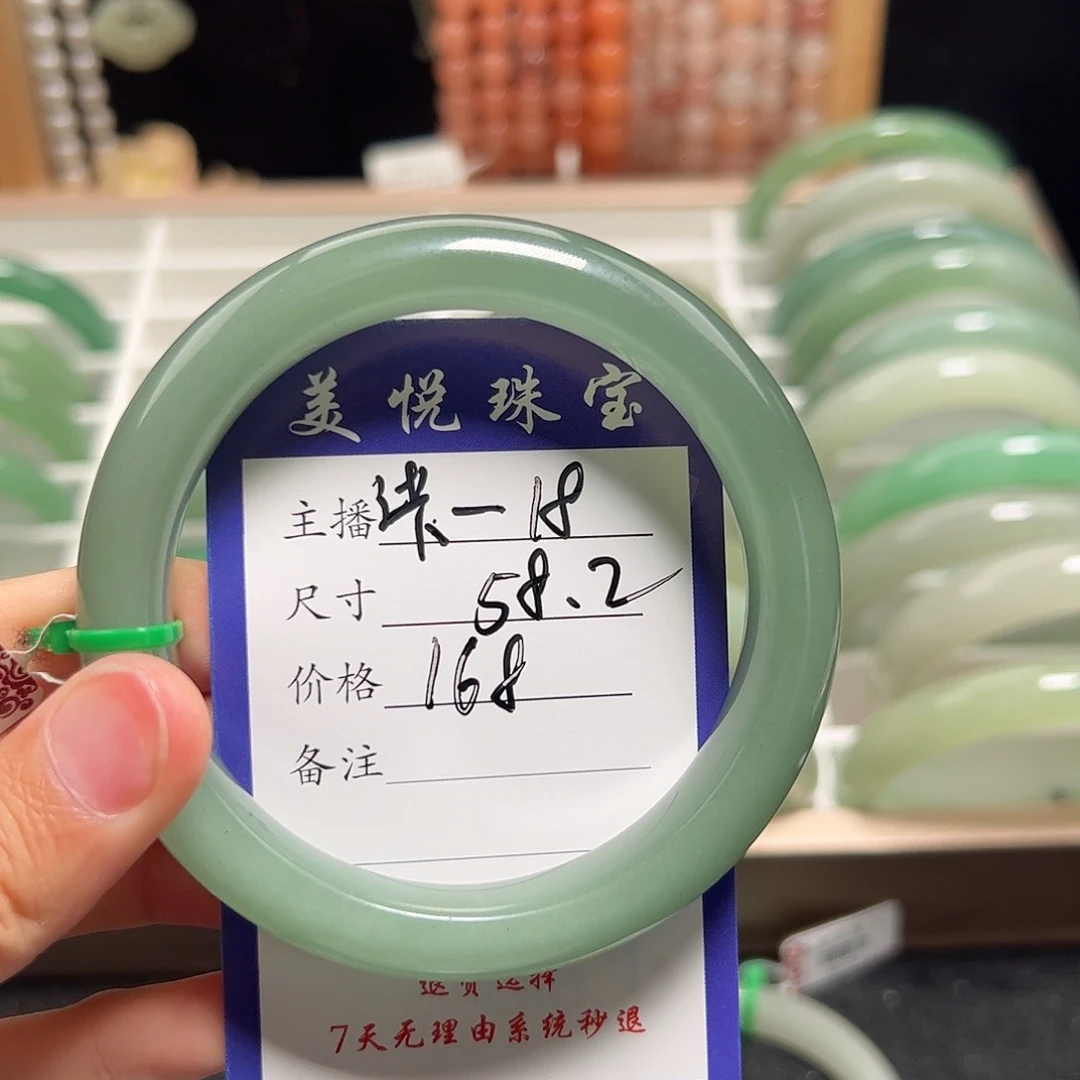 美悦珠宝
主播 柒一18
尺寸 58.2
价格 168
备注
退货选择
7天无理由系统秒退